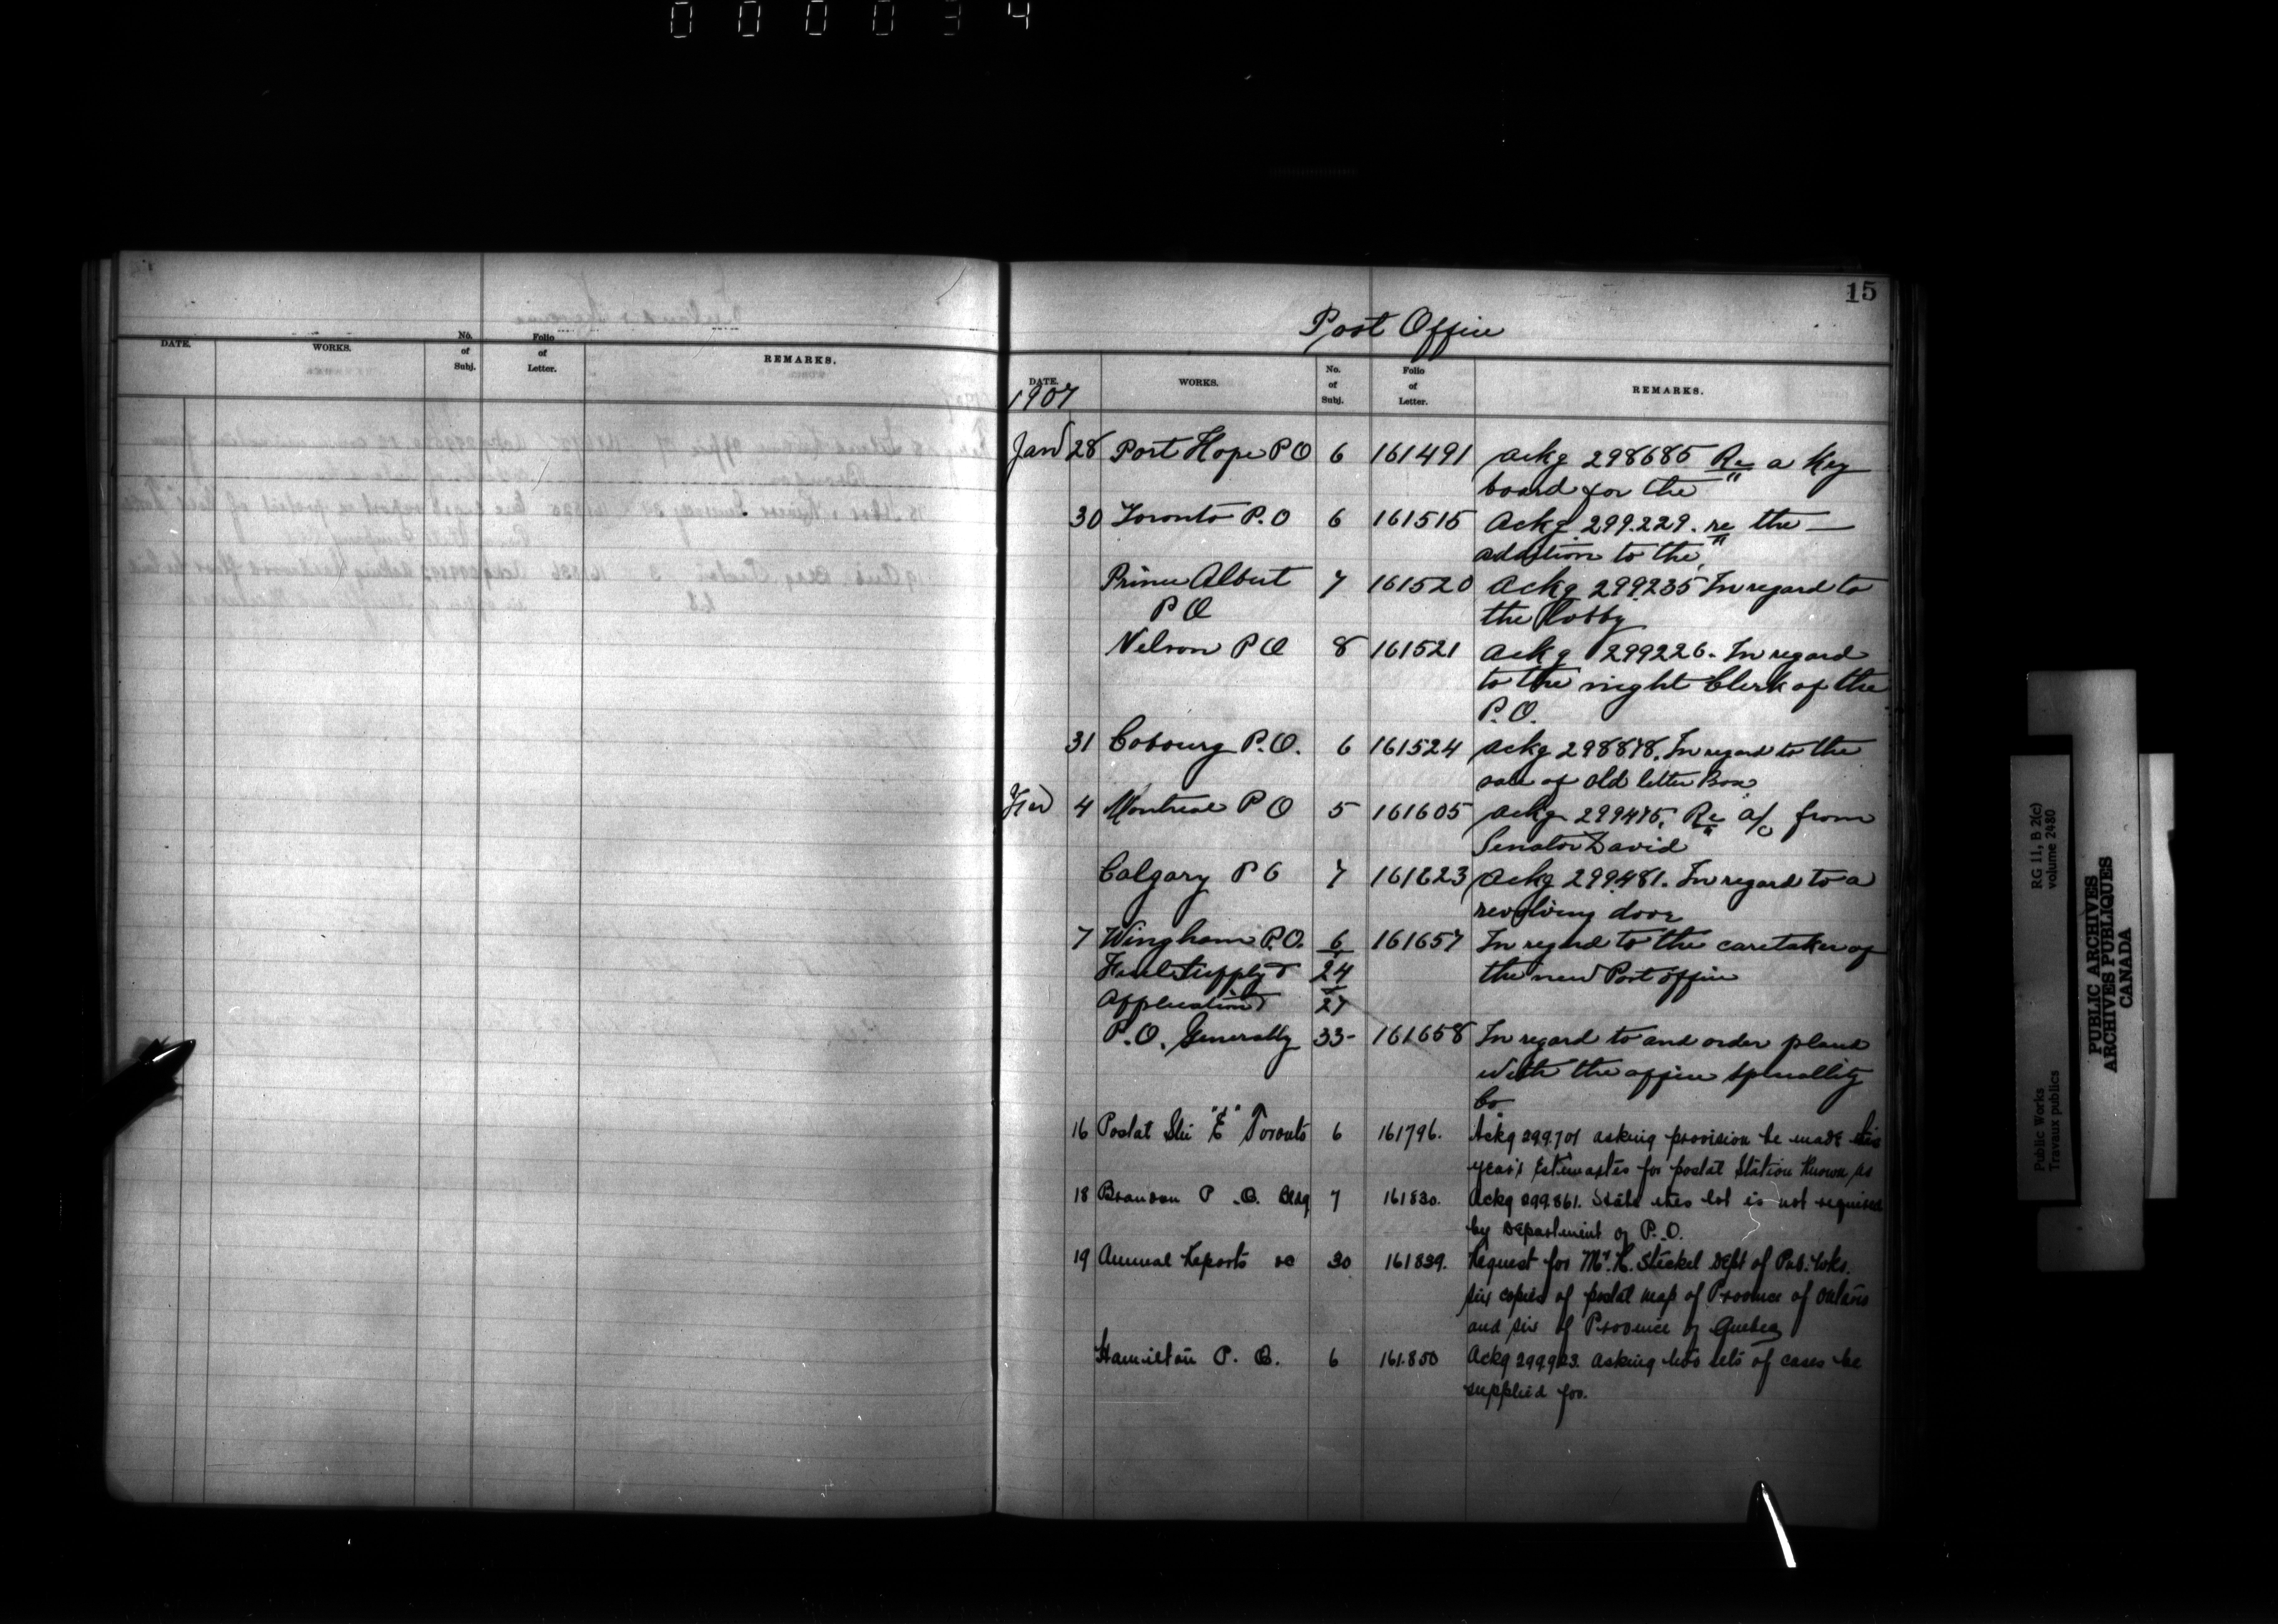 000034
DATE. WORKS. No. of Subj. Folio of Letter. REMARKS.
15
Post Office
DATE. WORKS. No. of Subj. Folio of Letter. REMARKS.
1907
Jan 28 Port Hope P O 6 161491 Ackg 298685 Re a Key
board for the "
30 Toronto P.O 6 161515 Ackg 299.229. re the
addition to the "
Prince Albert 7 161520 Ackg 299235 In regard to
P O the Lobby
Nelson P O 8 161521 Ackg 299226. In regard
to the night Clerk of the
P.O.
31 Cobourg P.O. 6 161524 Ackg 298878. In regard to the
sale of old letter Box
Feb 4 Montreal P O 5 161605 Ackg 299475. Re a/c from
Senator David
Calgary P O 7 161623 Ackg 299481. In regard to a
revolving door
7 Wingham P.O. 6 161657 In regard to the caretaker of
Fuel Supply & 24 the new Post office
Application 27
P.O. Generally 33- 161658 In regard to and order placed
with the office speciallity
Co.
16 Postal Stn "E" Toronto 6 161796. Ackg 299.701 asking provision be made this
year's Estimates for postal Station known as
18 Brandon P.O. Bldg 7 161830. Ackg 299.861. State this lot is not required
by Department of P.O.
19 Annual Reports &c 30 161839. Request for Mr. R. Steckel Dept of Pub. Wks.
six copies of postal map of Province of Ontario
and six of Province of Quebec
Hamilton P.O. 6 161.850 Ackg 299.923. Asking two sets of cases be
supplied for.
RG 11, B 2(c)
volume 2480
Public Works
Travaux publics
PUBLIC ARCHIVES
ARCHIVES PUBLIQUES
CANADA